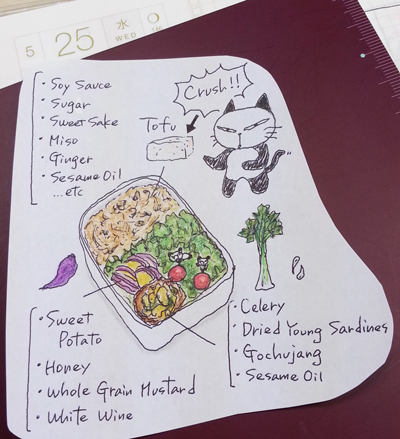 5 25 水
WED
Crush!!
Tofu
・Soy Sauce
・Sugar
・Sweet Sake
・Miso
・Ginger
・Sesame Oil
...etc
・Sweet
Potato
・Honey
・Whole Grain Mustard
・White Wine
・Celery
・Dried Young Sardines
・Gochujang
・Sesame Oil